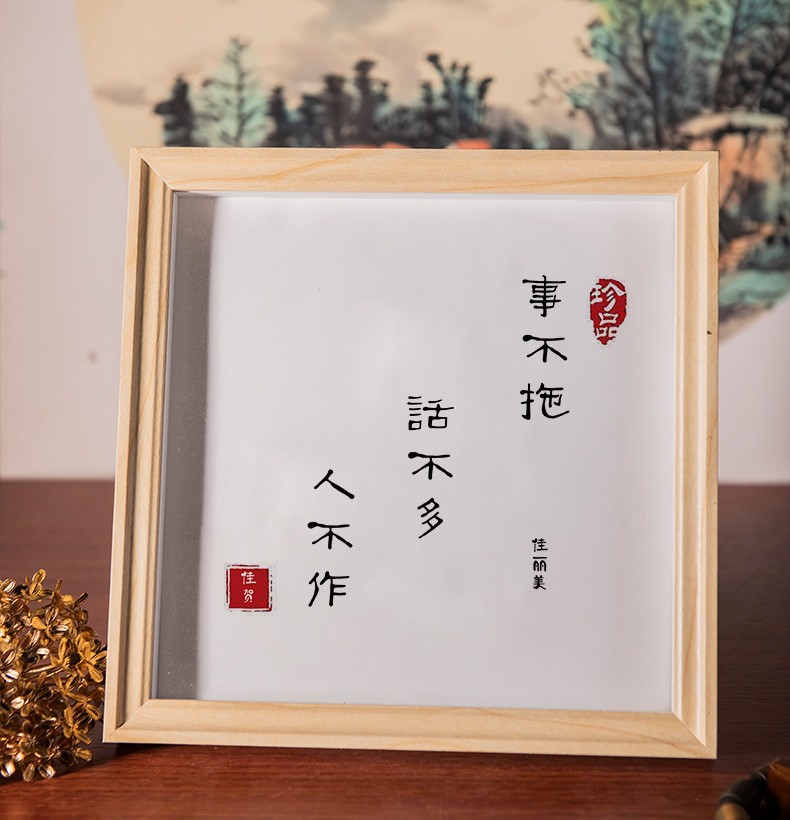 珍品
事不拖
話不多
人不作
佳丽美
佳贺